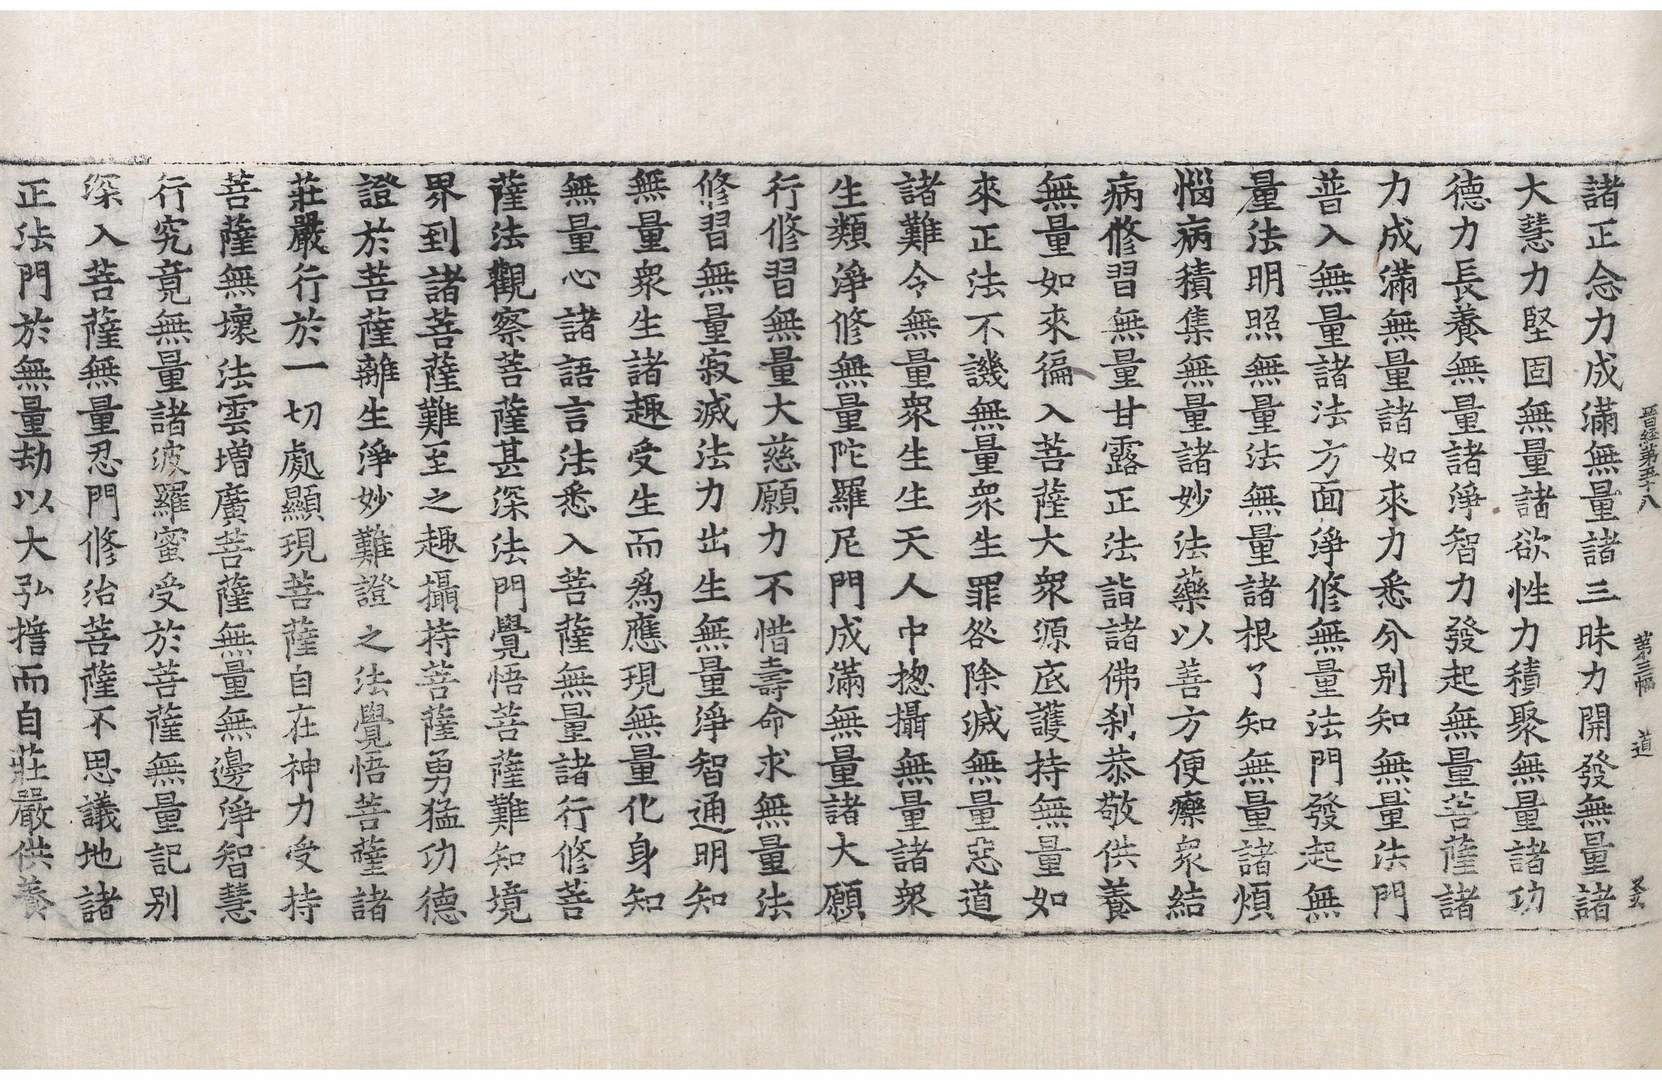 晉経第五十八 第三幅 道
諸正念力成滿無量諸三昧力開發無量諸
大慧力堅固無量諸欲性力積聚無量諸功
德力長養無量諸淨智力發起無量菩薩諸
力成滿無量諸如來力悉分別知無量法門
普入無量諸法方面淨修無量法門發起無
量法明照無量法無量諸根了知無量諸煩
惱病積集無量諸妙法藥以善方便療衆結
病修習無量甘露正法詣諸佛刹恭敬供養
無量如來徧入菩薩大衆源底護持無量如
來正法不譏無量衆生罪咎除滅無量惡道
諸難令無量衆生生天人中揔攝無量諸衆
生類淨修無量陀羅尼門成滿無量諸大願
行修習無量大慈願力不惜壽命求無量法
修習無量寂滅法力出生無量淨智通明知
無量衆生諸趣受生而爲應現無量化身知
無量心諸語言法悉入菩薩無量諸行修菩
薩法觀察菩薩甚深法門覺悟菩薩難知境
界到諸菩薩難至之趣攝持菩薩勇猛功德
證於菩薩離生淨妙難證之法覺悟菩薩諸
莊嚴行於一切處顯現菩薩自在神力受持
菩薩無壞法雲增廣菩薩無量無邊淨智慧
行究竟無量諸波羅蜜受於菩薩無量記別
深入菩薩無量忍門修治菩薩不思議地諸
正法門於無量劫以大弘擔而自莊嚴供養